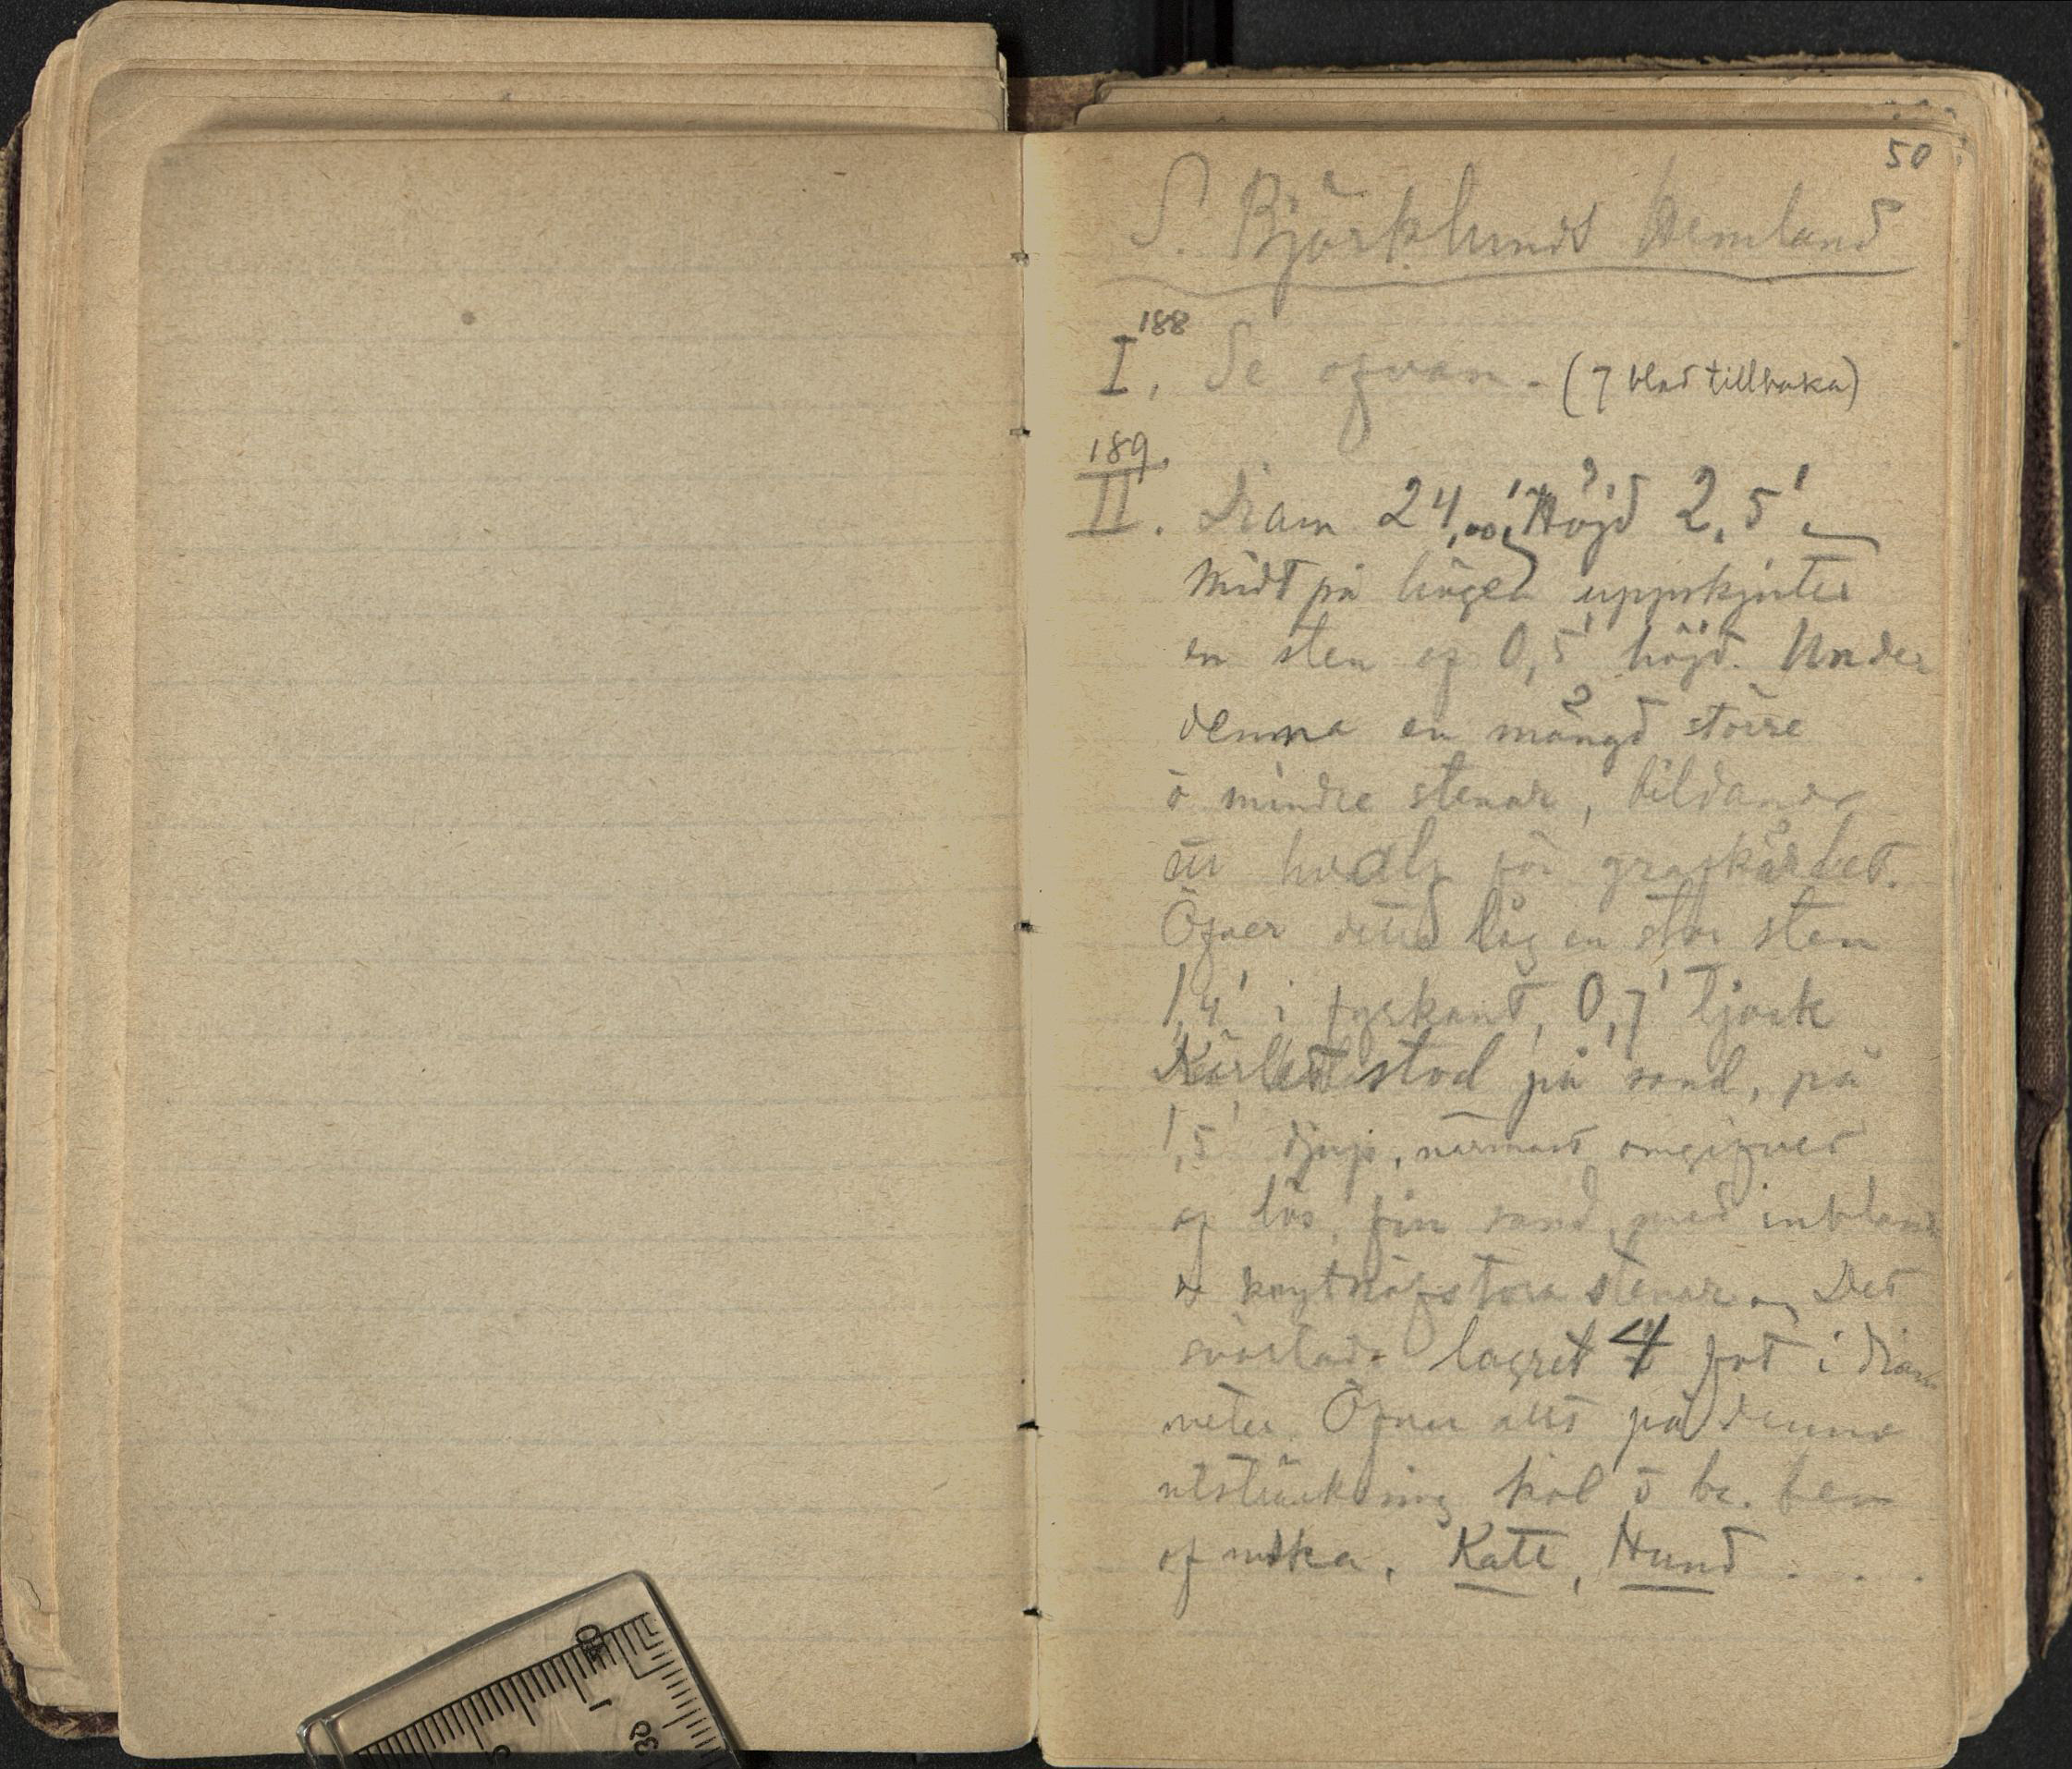 50
S. Björklunds Hemland
188
I, Se ofvan. (7 blad tillbaka)
189
II. Diam 24,00' Höjd 2,5'
Midt på högen uppskjuter
en sten af 0,5' höjd. Under
denna en mängd större
o mindre stenar, bildande
ett hvalf för grafkärlet.
Öfver detta låg en stor sten
1,4' i fyrkant, 0,7' tjock
Kärlet stod på sand, på
1,5' djup, närmast omgifvet
af lös, fin sand med inbland
knytnäfstora stenar. Det
svartade lagret 4 fot i diam
meter. Öfver allt på denna
utsträckning kol o br. ben
af meska, Katt, Hund . . .
0
1